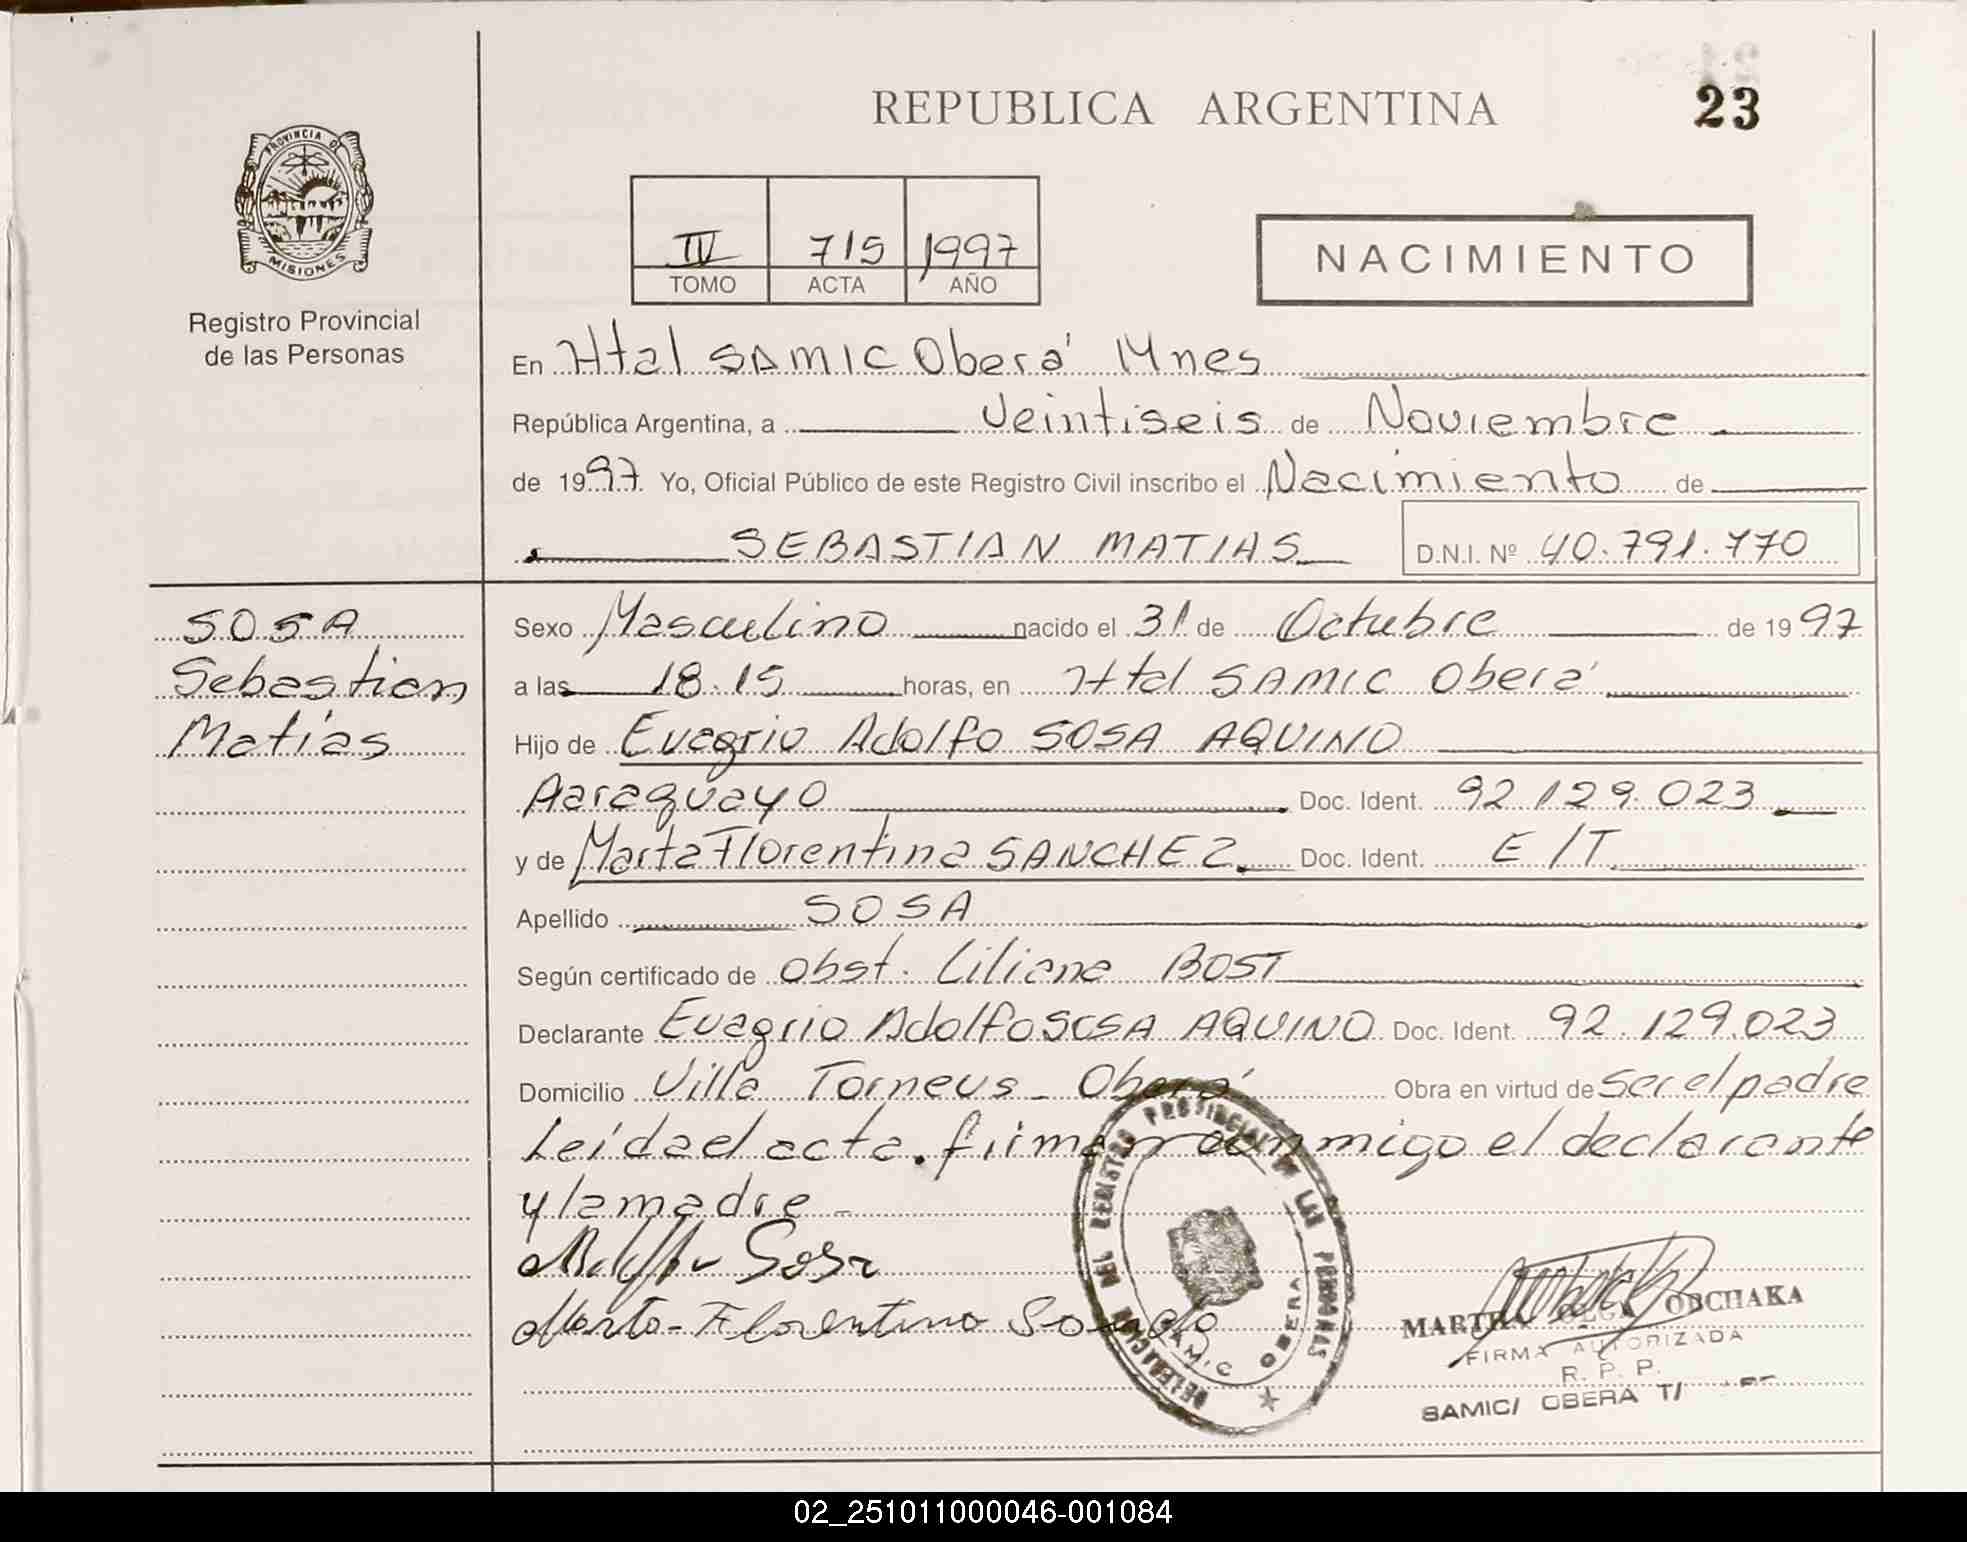 REPUBLICA ARGENTINA
23
PROVINCIA DE
MISIONES
Registro Provincial
de las Personas
IV 715 1997
TOMO ACTA AÑO
NACIMIENTO
En Htal SAMIC Oberá Mnes
República Argentina, a Veintiseis de Noviembre
de 1997 Yo, Oficial Público de este Registro Civil inscribo el Nacimiento de
SEBASTIAN MATIAS D.N.I. Nº 40.791.770
SOSA
Sebastian
Matías
Sexo Masculino nacido el 31 de Octubre de 1997
a las 18.15 horas, en Htal SAMIC Oberá
Hijo de Evagrio Adolfo SOSA AQUINO
Paraguayo Doc. Ident. 92.129.023
y de Marta Florentina SANCHEZ. Doc. Ident. E/T.
Apellido SOSA
Según certificado de Obst. Liliana BOST
Declarante Evagrio Adolfo SOSA AQUINO Doc. Ident. 92.129.023
Domicilio Villa Torneus - Oberá Obra en virtud de ser el padre
Leída el acta. firman conmigo el declarante
y la madre -
Sosa
Marta - Florentina
DELEGACION DEL REGISTRO PROVINCIAL DE LAS PERSONAS
SAMIC OBERA
MARTHA OLGA OBCHAKA
FIRMA AUTORIZADA
R. P. P.
SAMIC/ OBERA T/
02_251011000046-001084